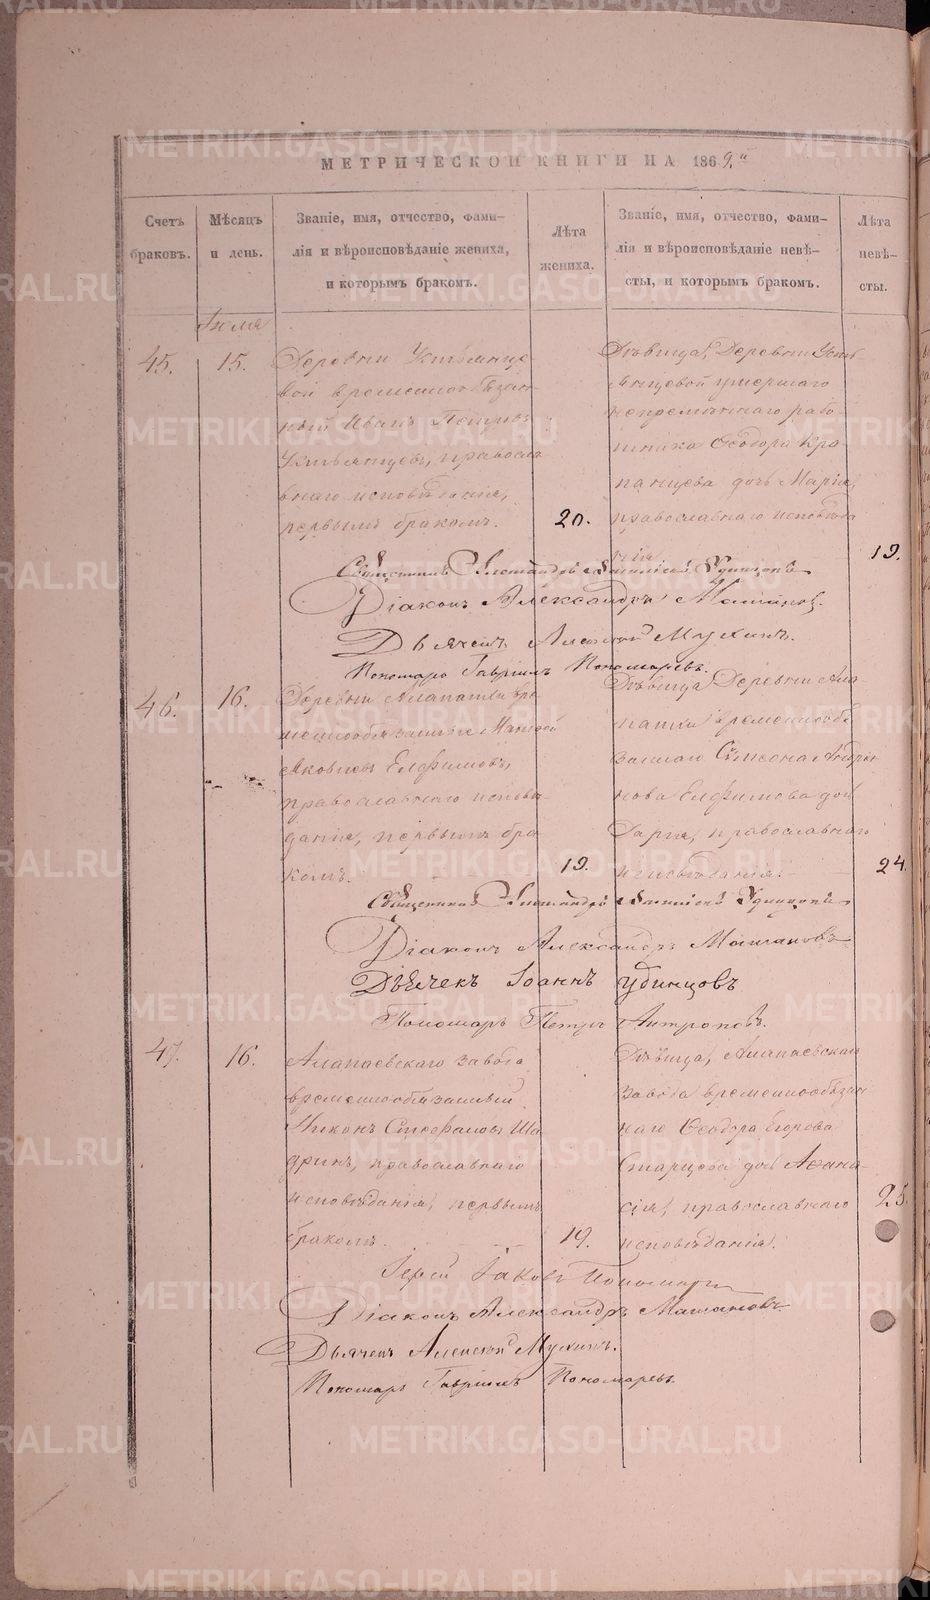 МЕТРИЧЕСКОЙ КНИГИ НА 1869.й
Счетъ браковъ.
Мѣсяцъ и день.
Званіе, имя, отчество, фами-
лія и вѣроисповѣданіе жениха,
и которымъ бракомъ.
Лѣта жениха.
Званіе, имя, отчество, фами-
лія и вѣроисповѣданіе невѣ-
сты, и которымъ бракомъ.
Лѣта невѣ-
сты.
45.
15.
Деревни Устьянце
вой временнообязан
ный Иванъ Петровъ
Устьянцевъ, православ
наго исповѣданія,
первымъ бракомъ.
20.
Дѣвица, Деревни Усть
янцевой умершаго
непремѣннаго рабо
тника Ѳеодора
дочь Марія,
православнаго исповѣда
нія
19.
Священникъ Удинцовъ
Діаконъ Александръ
Дьячекъ Алексѣй Мухинъ.
Пономарь Гавріилъ Пономаревъ.
46.
16.
Деревни Алапатки вре
меннообязанный
Яковлевъ Елфимовъ,
православнаго исповѣ
данія, первымъ бра
комъ.
19.
Дѣвица, Деревни Ала
патки временнообя
заннаго Сѵмеона Андріа
нова Елфимова дочь
Дарія, православнаго
исповѣданія.
24.
Священникъ Удинцовъ
Діаконъ Александръ
Дьячекъ Іоаннъ Удинцовъ
Пономарь Петръ Антроповъ.
47.
16.
Алапаевскаго завода
временнообязанный
Никонъ Стефановъ Ша
дринъ, православнаго
исповѣданія, первымъ
бракомъ.
19.
Дѣвица, Алапаевскаго
завода временнообязан
наго Ѳеодора Егорова
Старцева дочь Аѳана
сія, православнаго
исповѣданія.
25.
Іерей Іаковъ Пономаревъ
Діаконъ Александръ
Дьячекъ Алексѣй Мухинъ.
Пономарь Гавріилъ Пономаревъ.
METRIKI.GASO-URAL.RU